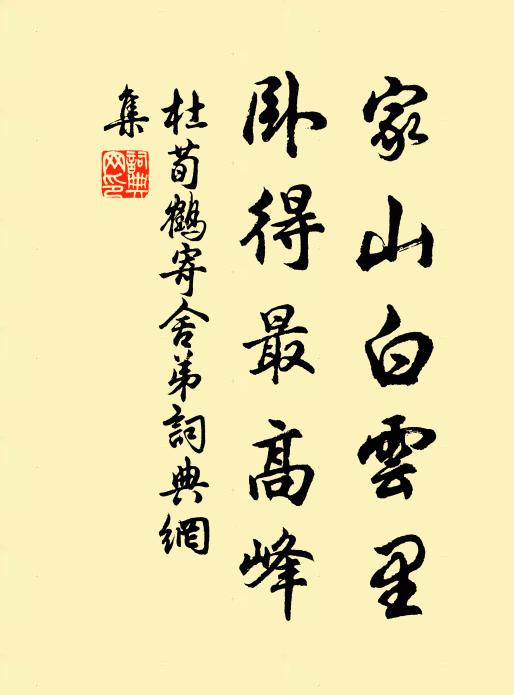 家山白雲里
卧得最高峰
杜荀鶴寄舍弟詞典網
集
詞典
网印